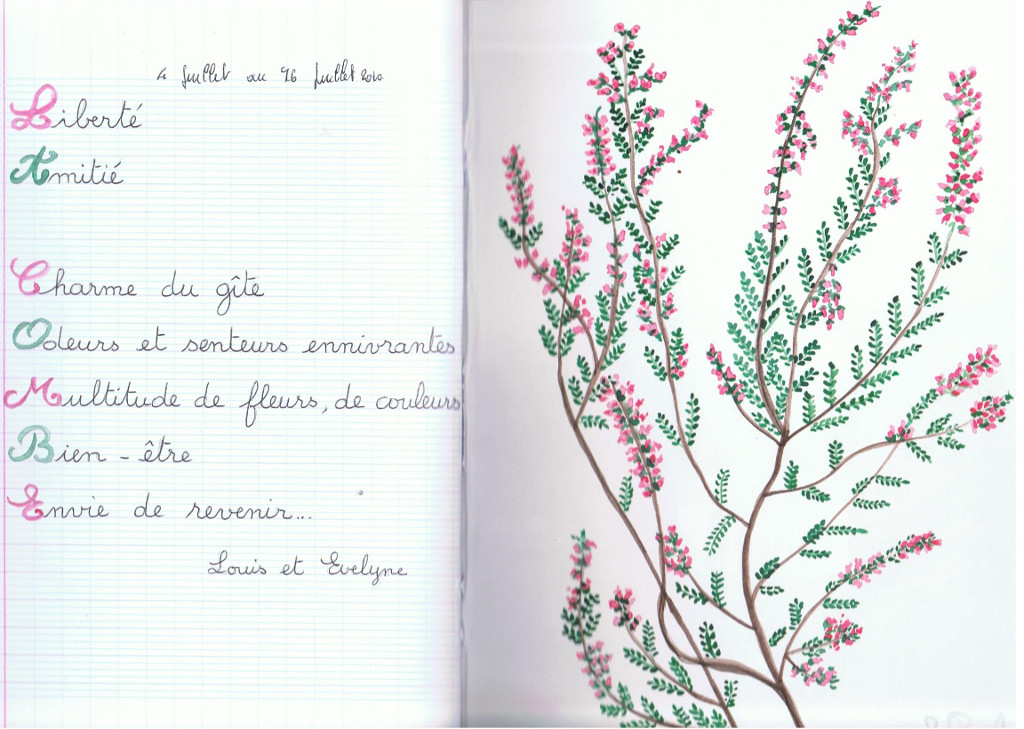 4 Juillet au 16 Juillet 2010
Liberté
Amitié
Charme du gîte
Odeurs et senteurs ennivrantes
Multitude de fleurs, de couleurs
Bien-être
Envie de revenir...
Louis et Evelyne